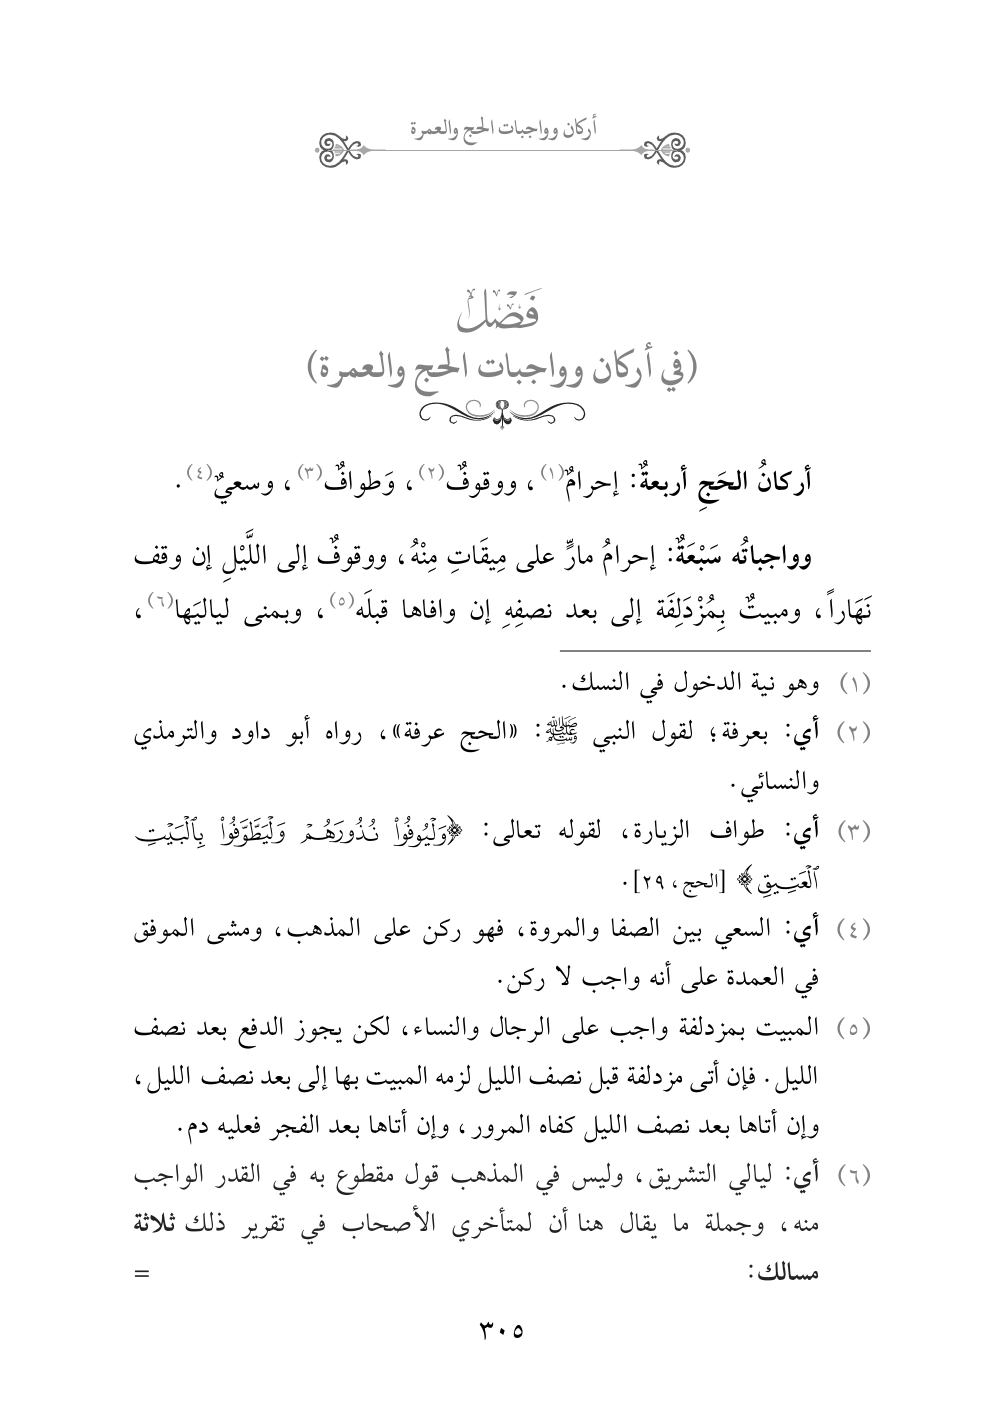 أركان وواجبات الحج والعمرة
فَصْل
(في أركان وواجبات الحج والعمرة)
أركانُ الحَجِ أربعةٌ: إحرامٌ(١)، ووقوفٌ(٢)، وَطوافٌ(٣)، وسعيٌ(٤).
وواجباتُه سَبْعَةٌ: إحرامُ مارٍّ على مِيقَاتِ مِنْهُ، ووقوفٌ إلى اللَّيْلِ إن وقف
نَهَاراً، ومبيتٌ بِمُزْدَلِفَة إلى بعد نصفِهِ إن وافاها قبلَه(٥)، وبمنى لياليَها(٦)،
(١) وهو نية الدخول في النسك.
(٢) أي: بعرفة؛ لقول النبي ﷺ: «الحج عرفة»، رواه أبو داود والترمذي
والنسائي.
(٣) أي: طواف الزيارة، لقوله تعالى: ﴿وَلْيُوفُوا۟ نُذُورَهُمْ وَلْيَطَّوَّفُوا۟ بِٱلْبَيْتِ
ٱلْعَتِيقِ﴾ [الحج، ٢٩].
(٤) أي: السعي بين الصفا والمروة، فهو ركن على المذهب، ومشى الموفق
في العمدة على أنه واجب لا ركن.
(٥) المبيت بمزدلفة واجب على الرجال والنساء، لكن يجوز الدفع بعد نصف
الليل. فإن أتى مزدلفة قبل نصف الليل لزمه المبيت بها إلى بعد نصف الليل،
وإن أتاها بعد نصف الليل كفاه المرور، وإن أتاها بعد الفجر فعليه دم.
(٦) أي: ليالي التشريق، وليس في المذهب قول مقطوع به في القدر الواجب
منه، وجملة ما يقال هنا أن لمتأخري الأصحاب في تقرير ذلك ثلاثة
مسالك: =
٣٠٥